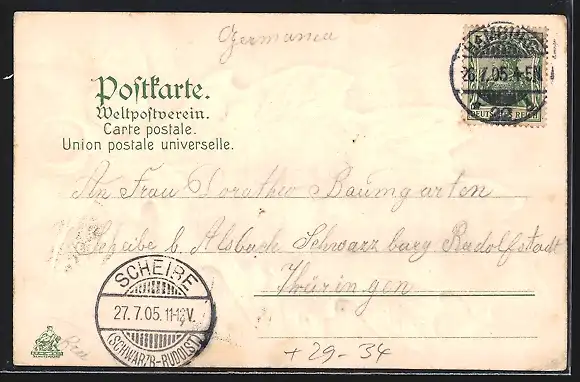 Germania
HAMBURG
26.7.05. 4-5N.
DEUTSCHES REICH
Postkarte.
Weltpostverein.
Carte postale.
Union postale universelle.
An Frau Dorathee Baumgarten
Scheibe b. Alsbach Schwarzburg Rudolfstadt
Thüringen
SCHEIBE
27.7.05. 11-12V.
(SCHWARZB-RUDOLST)
+29-34